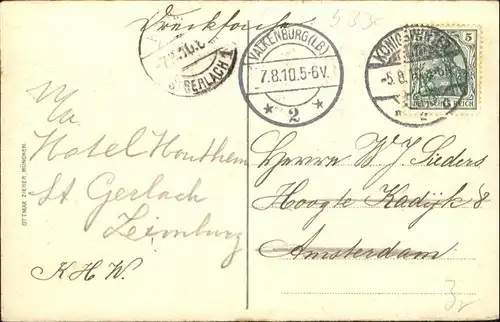 Drucksache
533
7.8.10.6
GERLACH 1
VALKENBURG (LB)
7.8.10.5-6V.
2
-5.8.10
5
DEUTSCHES REICH
Hotel Houthem
St Gerlach
Limburg
K. H. W.
OTTMAR ZIEHER, MÜNCHEN.
Herrn W J Sieders
Hoogte Kadijk 8
Amsterdam